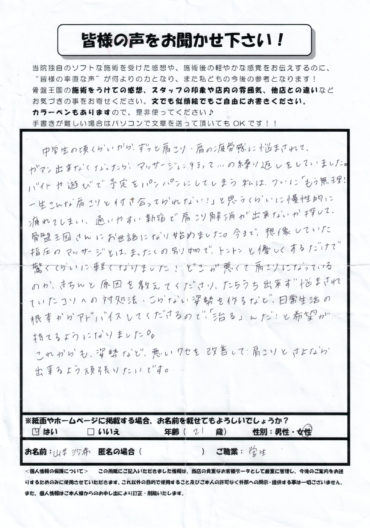 皆様の声をお聞かせ下さい！
当院独自のソフトな施術を受けた感想や、施術後の軽やかな感覚をお伝えするのに、
"皆様の率直な声"が何よりの力となり、また私どもの今後の参考となります！
骨盤王国の施術をうけての感想、スタッフの印象や店内の雰囲気、他店との違いなど
お気づきの事をお寄せください。文でも似顔絵でもご自由にお書きください。
カラーペンもありますので、是非使って下さい♪
手書きが難しい場合はパソコンで文章を送って頂いてもOKです！！
中学生の頃くらいから、ずっと肩こり・肩の疲労感に悩まされて、
ガマン出来なくなったらマッサージに行って…の繰り返しをしていました。
バイトや遊びで予定をパンパンにしてしまう私は、ついに「もう無理！
一生こんな肩こりと付き合ってられない！」と思うくらいに慢性的に
疲れてしまい、通いやすい新宿で肩こり解消が出来ないか探して、
骨盤王国さんにお世話になり始めました。今まで、想像していた
指圧のマッサージとは、まったくの別物で、トントンと優しくするだけで
驚くくらいに軽くなりました！どこが悪くて肩こりになっている
のか、きちんと原因を教えてくださり、ただうち出来ず悩まされて
いたコリへの対処法・こりがない姿勢を作るなど、日常生活の
根本からアドバイスしてくださるので「治る」んだ！と希望が
持てるようになりました。
これからも、姿勢など、悪いクセを改善して肩こりとさよなら
出来るよう頑張りたいです。
※紙面やホームページに掲載する場合、お名前を載せてもよろしいでしょうか？
☑はい □いいえ 年齢（21）歳 性別：男性・女性
お名前：山本 匿名の場合（ ） ご職業：学生
＜個人情報の保護について＞ この用紙にご記入いただきました情報は、当店の貴重なお客様データとして厳重に管理し、今後のご案内をお送り
するためのみに使用させていただきます。これ以外の目的で使用すること及びご本人の許可なく外部への開示・提供する事は一切ございません。
また、個人情報はご本人様からのお申し出により訂正・削除いたします。